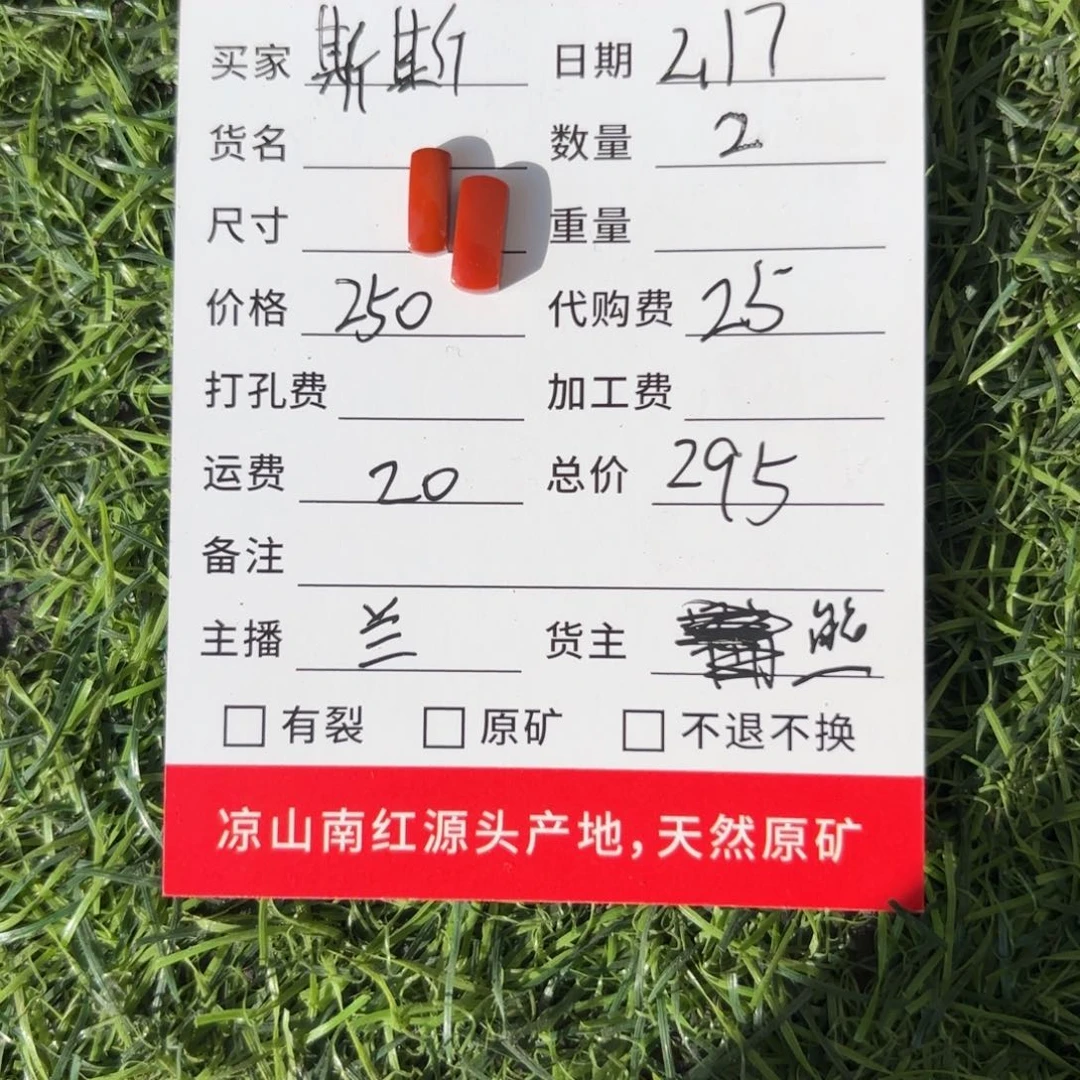 买家 斯斯 日期 2,17
货名 数量 2
尺寸 重量
价格 250 代购费 25
打孔费 加工费
运费 20 总价 295
备注
主播 兰 货主 熊
有裂 原矿 不退不换
凉山南红源头产地,天然原矿